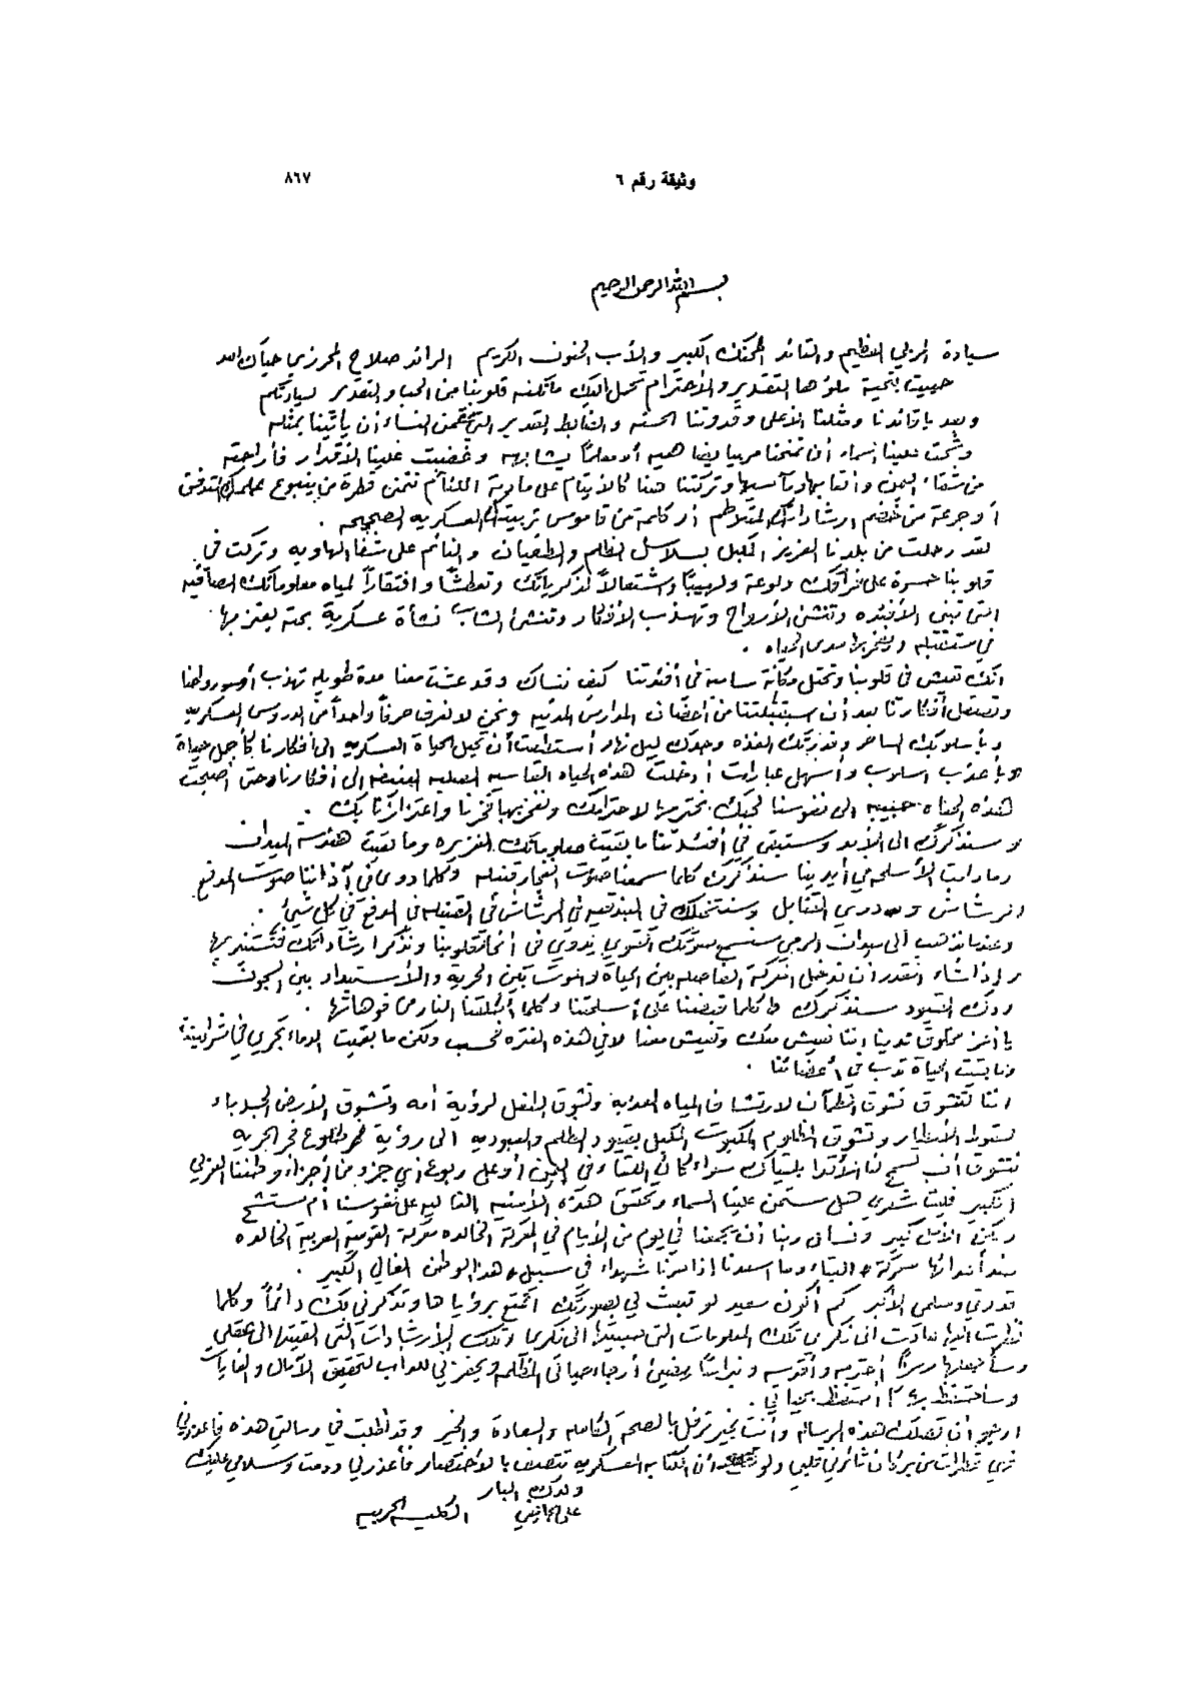 وثيقة رقم ٦
٨٦٧
بسم الله الرحمن الرحيم
سيادة المربي العظيم والقائد المحنك الكبير والأب الحنون الكريم الرائد صلاح المحرزي حياك الله
حييت بتحية ملؤها التقدير والأحترام تحمل اليك ماتكنه قلوبنا من الحب والتقدير لسيادتكم
وبعد ياقائدنا ومثلنا الأعلى وقدوتنا الحسنه والضابط القدير التي عقمن النساء أن يأتينا بمثله
وشحت علينا السماء أن تمنحنا مربيا يضاهيه أو معلماً يشابهه وغضبت علينا الأقدار فأراحته
من شقاء اليمن وأتعابها ومآسيها وتركتنا هنا كالأيتام على مأدبة اللئام نتمنى قطرة من ينبوع علمك المتدفق
أو جرعة من خضم ارشاداتك المتلاطم أو كلمة من قاموس تربيتك العسكريه الصحيحه .
لقد رحلت من بلدنا العزيز المكبل بسلاسل الظلم والطغيان والنائم على شفا الهاويه وتركت في
قلوبنا حسرة على فراقك ولوعة ولهيباً واشتعالاً لذكرياتك وتعطشاً وافتقاراً لمياه معلوماتك الصافيه
التي تبني الأفئده وتنعش الأرواح وتهذب الأفكار وتنشئ الشاب نشأة عسكرية بحته يعتز بها
في مستقبله ويفخر بها مدى الحياه .
انك تعيش في قلوبنا وتحتل مكانة ساميه في أفئدتنا كيف ننساك وقد عشت معنا مدة طويله تهذب أرواحنا
وتصقل أفكارنا بعد أن استقبلتنا من أحضان المدارس المدنيه ونحن لا نعرف حرفاً واحداً من الدروس العسكريه
وبأسلوبك الساحر وقدرتك الفذه وجهدك ليل نهار أستطعت أن تحيل الحياة العسكريه الى أفكارنا كأجمل حياة
وبأعذب اسلوب وأسهل عبارات أدخلت هذه الحياه القاسيه الصعبه البغيضه الى أفكارنا وحتى أصبحت
هذه الحياه حبيبه الى نفوسنا لحبك نحترمها لاحترامك ونفخر بها لفخرنا واعتزازنا بك .
وسنذكرك الى الأبد وستبقى في أفئدتنا ما بقيت معلوماتك الغزيره وما بقيت هندسة الميدان
وما دامت الأسلحه في أيدينا سنذكرك كلما سمعنا صوت انفجار قنبله وكلما دوى في آذاننا صوت المدفع
والرشاش ودوي القنابل وسنتخيلك في البندقيه في الرشاش في القنبله في المدفع في كل شيئ .
وعندما نذهب الى ميدان الرمي سنسمع صوتك القوي يدوي في اعماق قلوبنا ونذكر ارشاداتك فنستنير بها
وإذا شاء القدر أن ندخل المعركة الفاصله بين الحياة والموت بين الحرية والأستبداد بين السجون
وفك القيود سنذكرك كلما قبضنا على أسلحتنا وكلما انطلقت النار من فوهاتها .
يا أعز مخلوق لدينا اننا نعيش معك وتعيش معنا لا في هذه الفتره فحسب ولكن ما بقيت الدماء تجري في شراييننا
وما بقيت الحياة تدب في أعضائنا .
اننا نتشوق تشوق الظمآن لارتشاف المياه العذبه وتشوق الطفل لرؤية أمه وتشوق الأرض الجدباء
لسقوط الأمطار وتشوق المظلوم المكبوت المكبل بقيود الظلم والعبوديه الى رؤية طلوع فجر الحريه
نتشوق أن تسمح لنا الأقدار بلقياك سواء كان اللقاء في اليمن أو على ربوع أي جزء من أجزاء وطننا العربي
الكبير فليت شعري هل ستمن علينا السماء وتحقق هذه الأمنيه الغاليه على نفوسنا أم ستشح
ولكن الأمل كبير ونسأل ربنا أن يجمعنا في يوم من الأيام في المعركة الخالده معركة القوميه العربية الخالده
وما أسعدنا إذا صرنا شهداء في سبيل هذا الوطن الغالي الكبير .
قدوتي ومعلمي الأكبر كم أكون سعيد لو تبعث لي بصورتك اتمتع برؤياها وتذكرني بك دائماً وكلما
نظرت اليها عادت الى ذكرى تلك المعلومات التي حببتها الى وتلك الأرشادات التي القيتها الى عقلي
وسأجعلها رمزاً أحترمه وأقدسه ونبراساً يضيئ أرجاء حياتي المظلمه ويحفزني للدأب لتحقيق الآمال والغايات
وسأحتفظ بها أحتفاظي بحياتي .
ارجو أن تصلك هذه الرساله وأنت بخير ترفل بالصحة الكامله والسعادة والخير وقد أطلت في رسالتي هذه فاعذرني
فهي قطرات من بركان ثائر في قلبي ولو أن الكتابه العسكريه تتصف بالأختصار فأعذرني ودمت وسلامي عليك
ولدك البار
علي الجائفي الكليه الحربيه